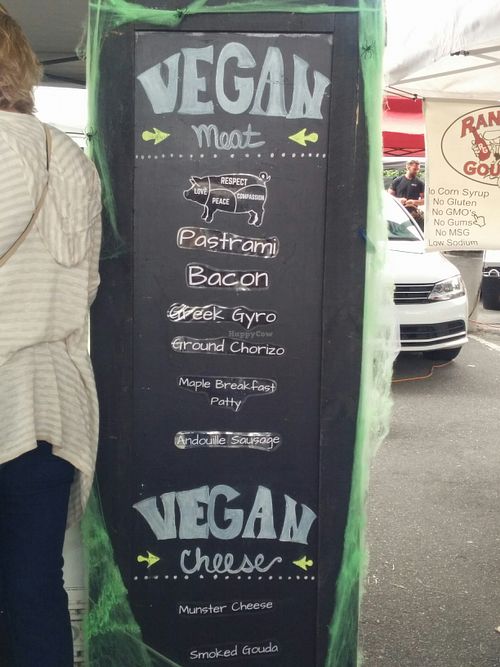 VEGAN
Meat
RESPECT
LOVE
PEACE
COMPASSION
Pastrami
Bacon
Greek Gyro
HappyCow
Ground Chorizo
Maple Breakfast
Patty
Andouille Sausage
VEGAN
Cheese
Munster Cheese
Smoked Gouda
No Gluten
No GMO's
No Gums
No MSG
Low Sodium